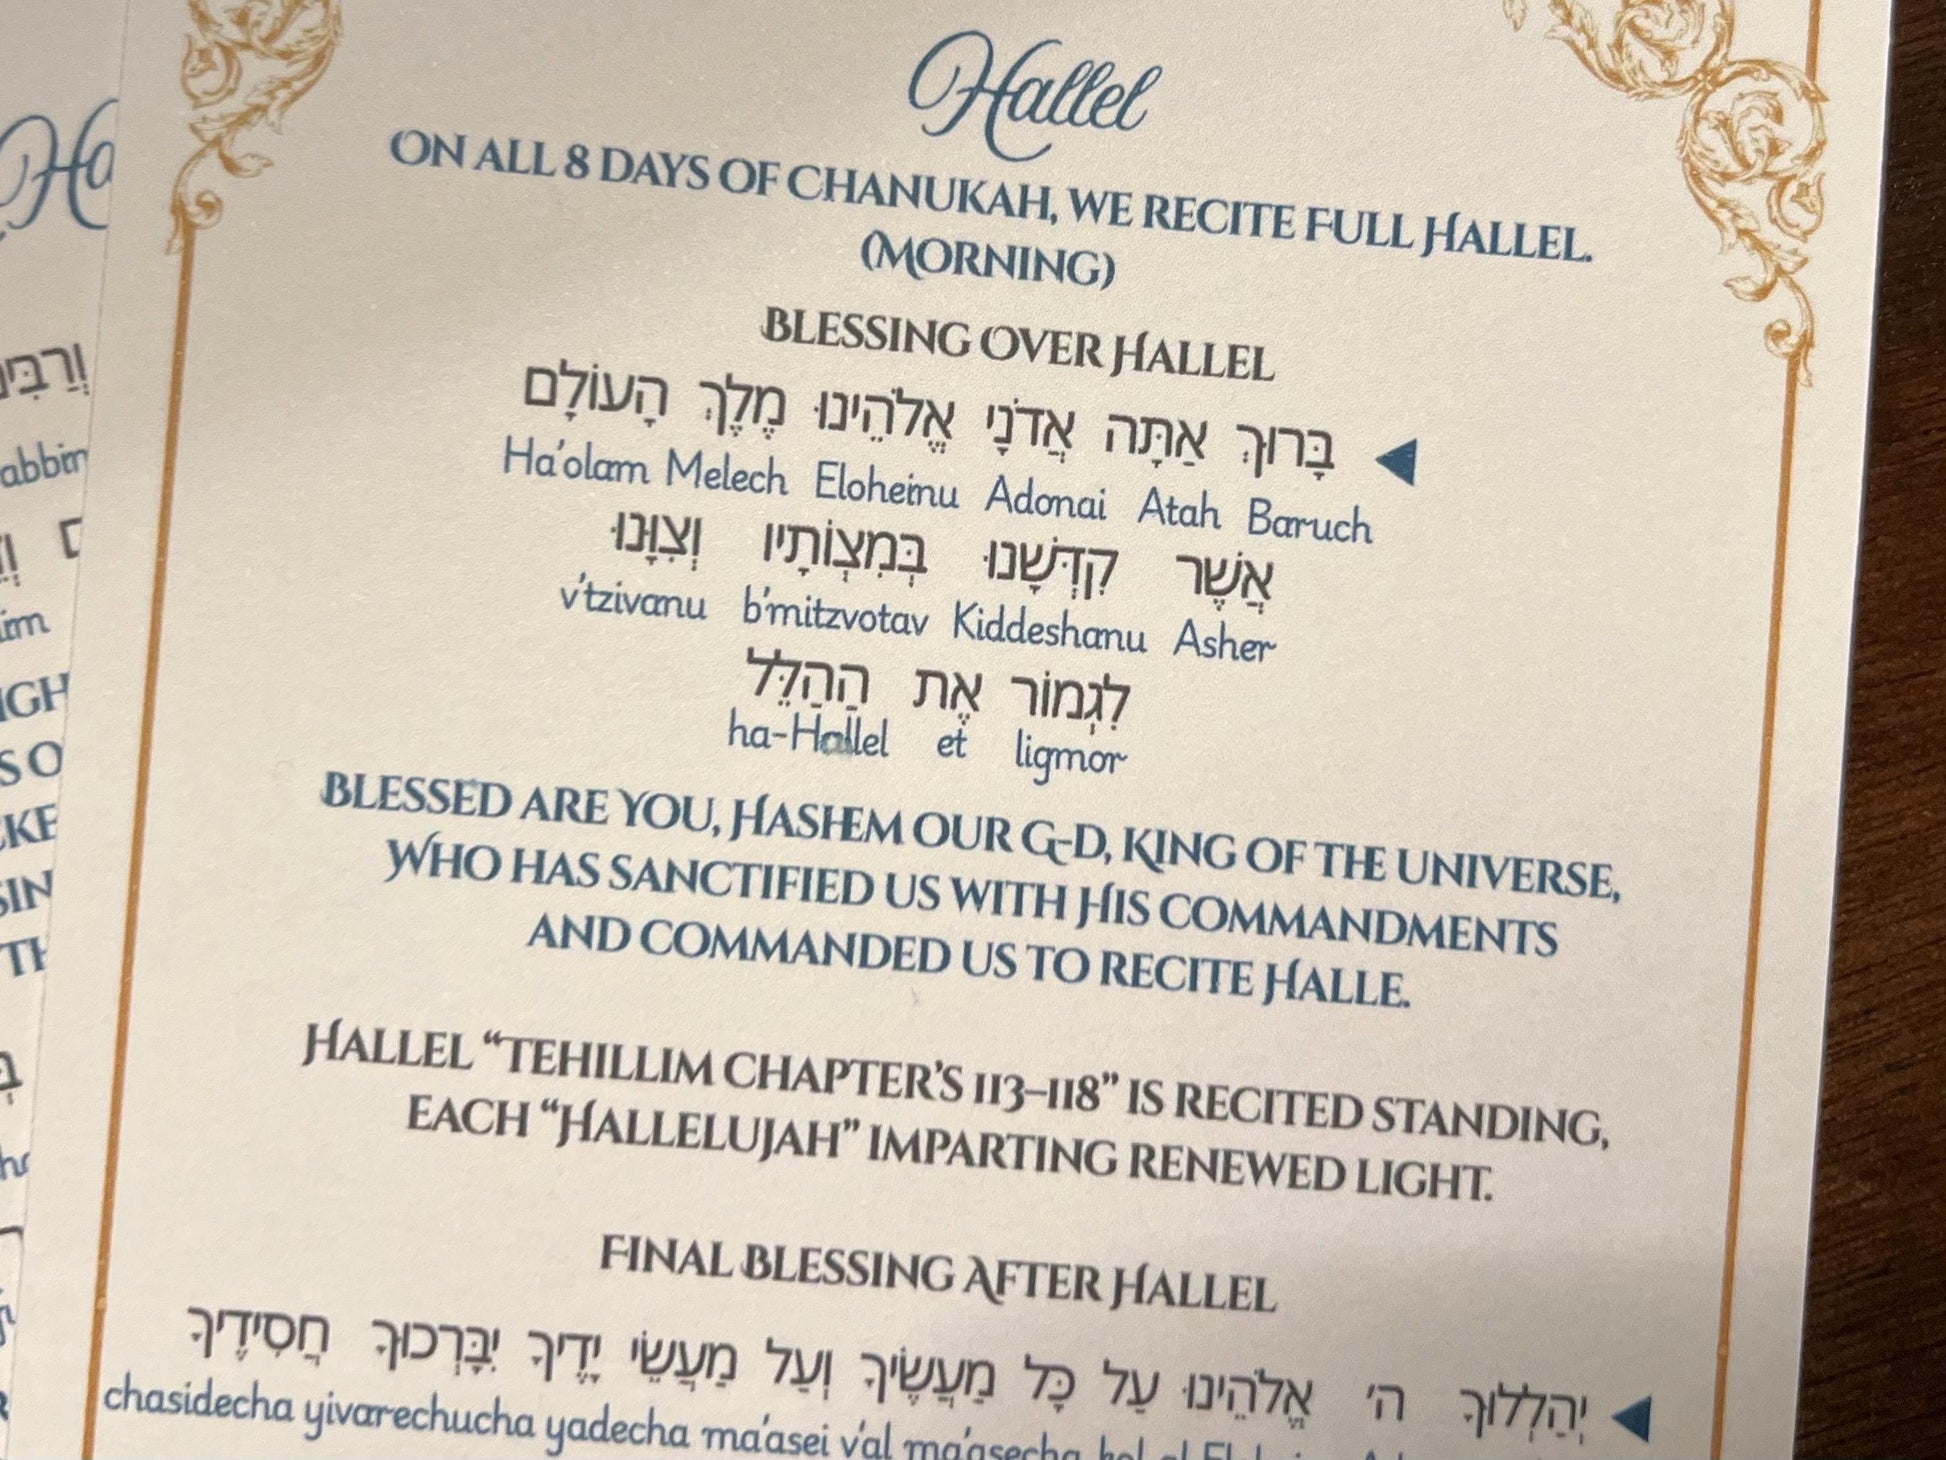 Hallel
ON ALL 8 DAYS OF CHANUKAH, WE RECITE FULL HALLEL.
(MORNING)
BLESSING OVER HALLEL
בָּרוּךְ אַתָּה אֲדֹנָי אֱלֹהֵינוּ מֶלֶךְ הָעוֹלָם
Ha'olam Melech Eloheinu Adonai Atah Baruch
אֲשֶׁר קִדְּשָׁנוּ בְּמִצְוֹתָיו וְצִוָּנוּ
v'tzivanu b'mitzvotav Kiddeshanu Asher
לִגְמוֹר אֶת הַהַלֵּל
ha-Hallel et ligmor
BLESSED ARE YOU, HASHEM OUR G-D, KING OF THE UNIVERSE,
WHO HAS SANCTIFIED US WITH HIS COMMANDMENTS
AND COMMANDED US TO RECITE HALLE.
HALLEL “TEHILLIM CHAPTER’S 113–118” IS RECITED STANDING,
EACH “HALLELUJAH” IMPARTING RENEWED LIGHT.
FINAL BLESSING AFTER HALLEL
יְהַלְלוּךָ ה׳ אֱלֹהֵינוּ עַל כָּל מַעֲשֶׂיךָ וְעַל מַעֲשֵׂי יָדֶיךָ יִבָּרְכוּךָ חֲסִידֶיךָ
chasidecha yivarechucha yadecha ma'asei v'al ma'asecha